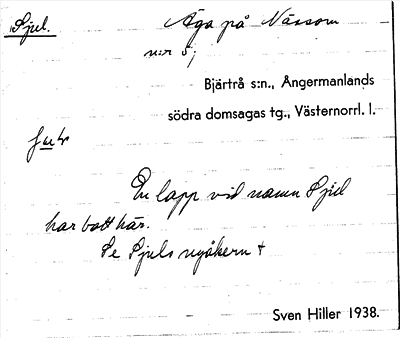 Sjul. Äga på Nässom
n:o 5;
Bjärtrå s:n., Ångermanlands
södra domsagas tg., Västernorrl. l.
En lapp vid namn Sjul
har bott här.
Se Sjuls nyåkern +
Sven Hiller 1938.